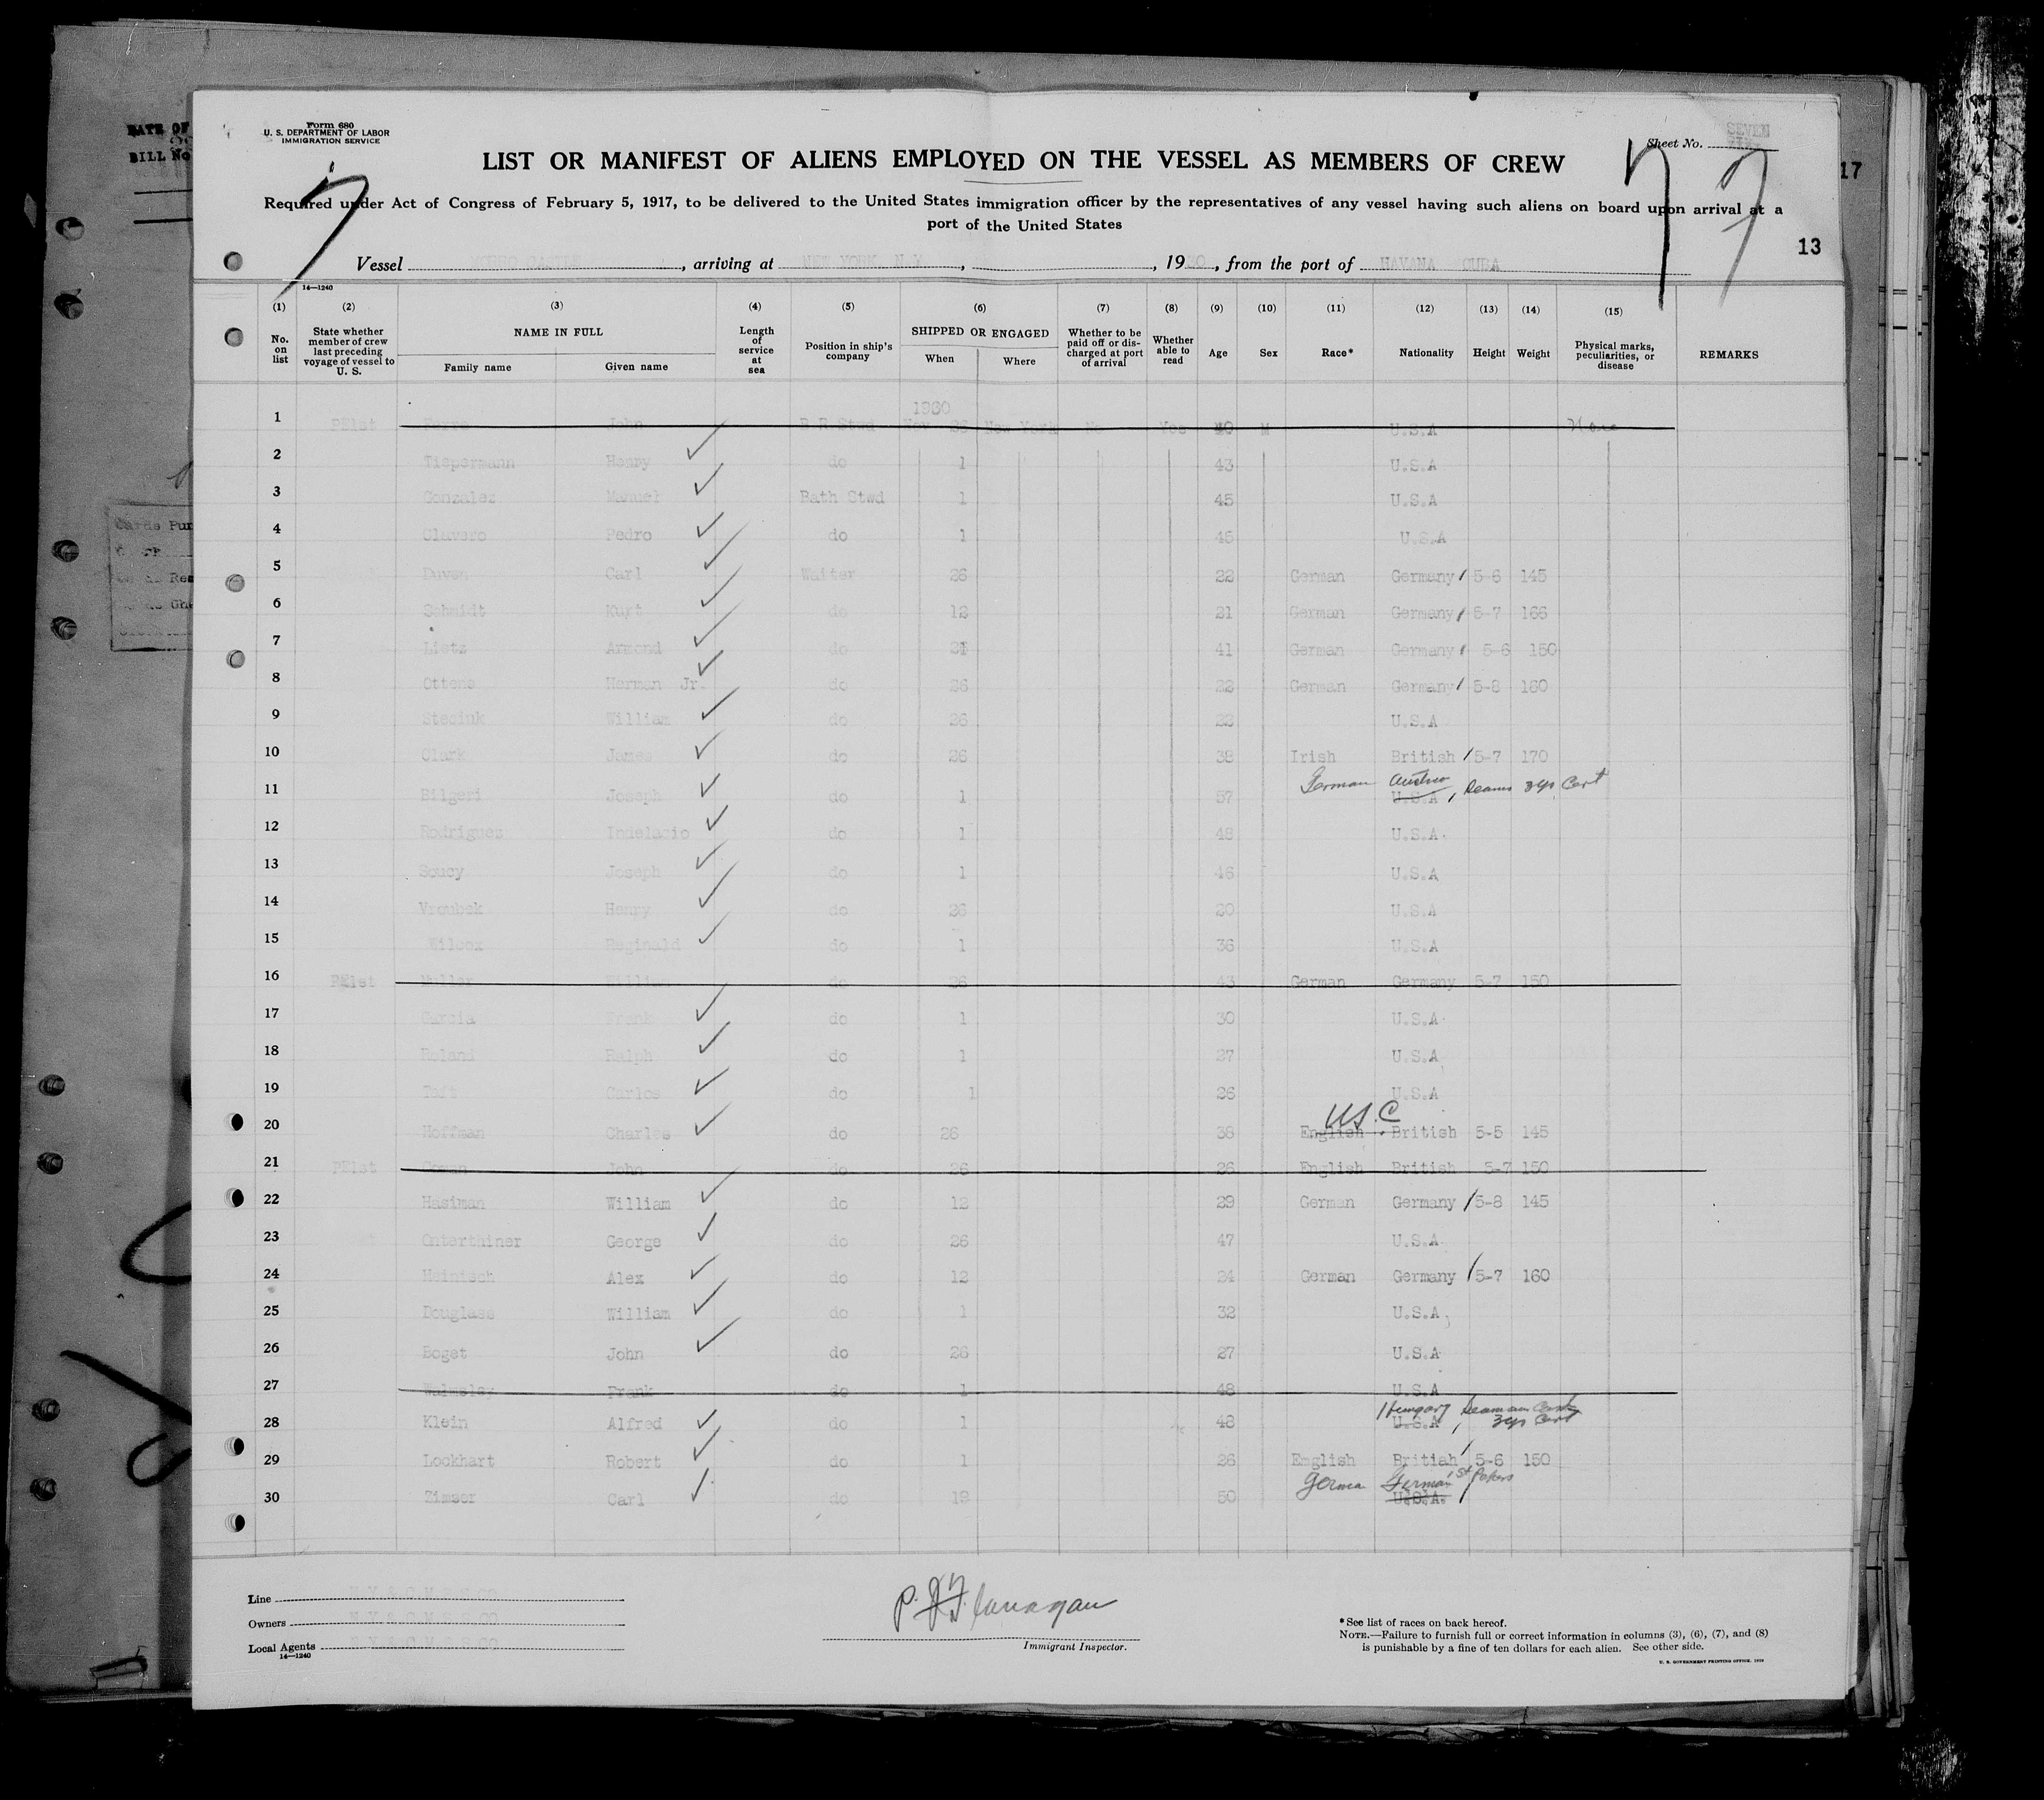 DATE OF
BILL No
Form 680
U. S. DEPARTMENT OF LABOR
IMMIGRATION SERVICE
Sheet No. SEVEN
LIST OR MANIFEST OF ALIENS EMPLOYED ON THE VESSEL AS MEMBERS OF CREW
7 7 7
17
Required under Act of Congress of February 5, 1917, to be delivered to the United States immigration officer by the representatives of any vessel having such aliens on board upon arrival at a
port of the United States
13
Vessel MORRO CASTLE, arriving at NEW YORK, N.Y., , 1930, from the port of HAVANA CUBA
14—1240
(1) (2) (3) (4) (5) (6) (7) (8) (9) (10) (11) (12) (13) (14) (15)
No. on list
State whether member of crew last preceding voyage of vessel to U. S.
NAME IN FULL
Family name
Given name
Length of service at sea
Position in ship's company
SHIPPED OR ENGAGED
When
Where
Whether to be paid off or discharged at port of arrival
Whether able to read
Age
Sex
Race*
Nationality
Height
Weight
Physical marks, peculiarities, or disease
REMARKS
1930
1 John B.R.Stwd Nov 26 New York No Yes 40 M U.S.A None
2 Tiepermann Henry do 1 43 U.S.A
3 Gonzalez Manuel Bath Stwd 1 45 U.S.A
4 Clavero Pedro do 1 45 U.S.A
5 Duven Carl Waiter 26 22 German Germany 5-6 145
6 Schmidt Kurt do 12 21 German Germany 5-7 166
7 Lietz Armond do 41 German Germany 5-6 150
8 Ottens Herman Jr. do 26 22 German Germany 5-8 160
9 Steciuk William do 26 U.S.A
10 Clark James do 26 38 Irish British 5-7 170
11 Bilgeri Joseph do 1 57 German Austria U.S.A Cert
12 Rodriguez Indelacio do 1 48 U.S.A
13 Soucy Joseph do 1 46 U.S.A
14 Vroubek Henry do 26 20 U.S.A
15 Wilcox Reginald do 1 36 U.S.A
16 Muller William do 26 43 German Germany 5-7 150
17 Garcia Frank do 1 30 U.S.A
18 Roland Ralph do 1 27 U.S.A
19 Taft Carlos do 1 26 U.S.A
U.S.C
20 Hoffman Charles do 26 38 English British 5-5 145
21 John do 26 26 English British 5-7 150
22 Hasiman William do 12 29 German Germany 5-8 145
23 Onterthiner George do 26 47 U.S.A
24 Heinisch Alex do 12 24 German Germany 5-7 160
25 Douglass William do 1 32 U.S.A
26 Boget John do 26 27 U.S.A
27 Walmsley Frank do 1 48 U.S.A
28 Klein Alfred do 1 48 Hungary U.S.A Cert
29 Lockhart Robert do 1 26 English British 5-6 150
30 Zimser Carl do 19 50 German U.S.A.
Line N.Y. & C.M.S.S.CO
Owners N.Y. & C.M.S.S.CO
Local Agents N.Y. & C.M.S.S.CO
14—1240
P. J. Flanagan
Immigrant Inspector.
*See list of races on back hereof.
NOTE.—Failure to furnish full or correct information in columns (3), (6), (7), and (8)
is punishable by a fine of ten dollars for each alien. See other side.
U. S. GOVERNMENT PRINTING OFFICE